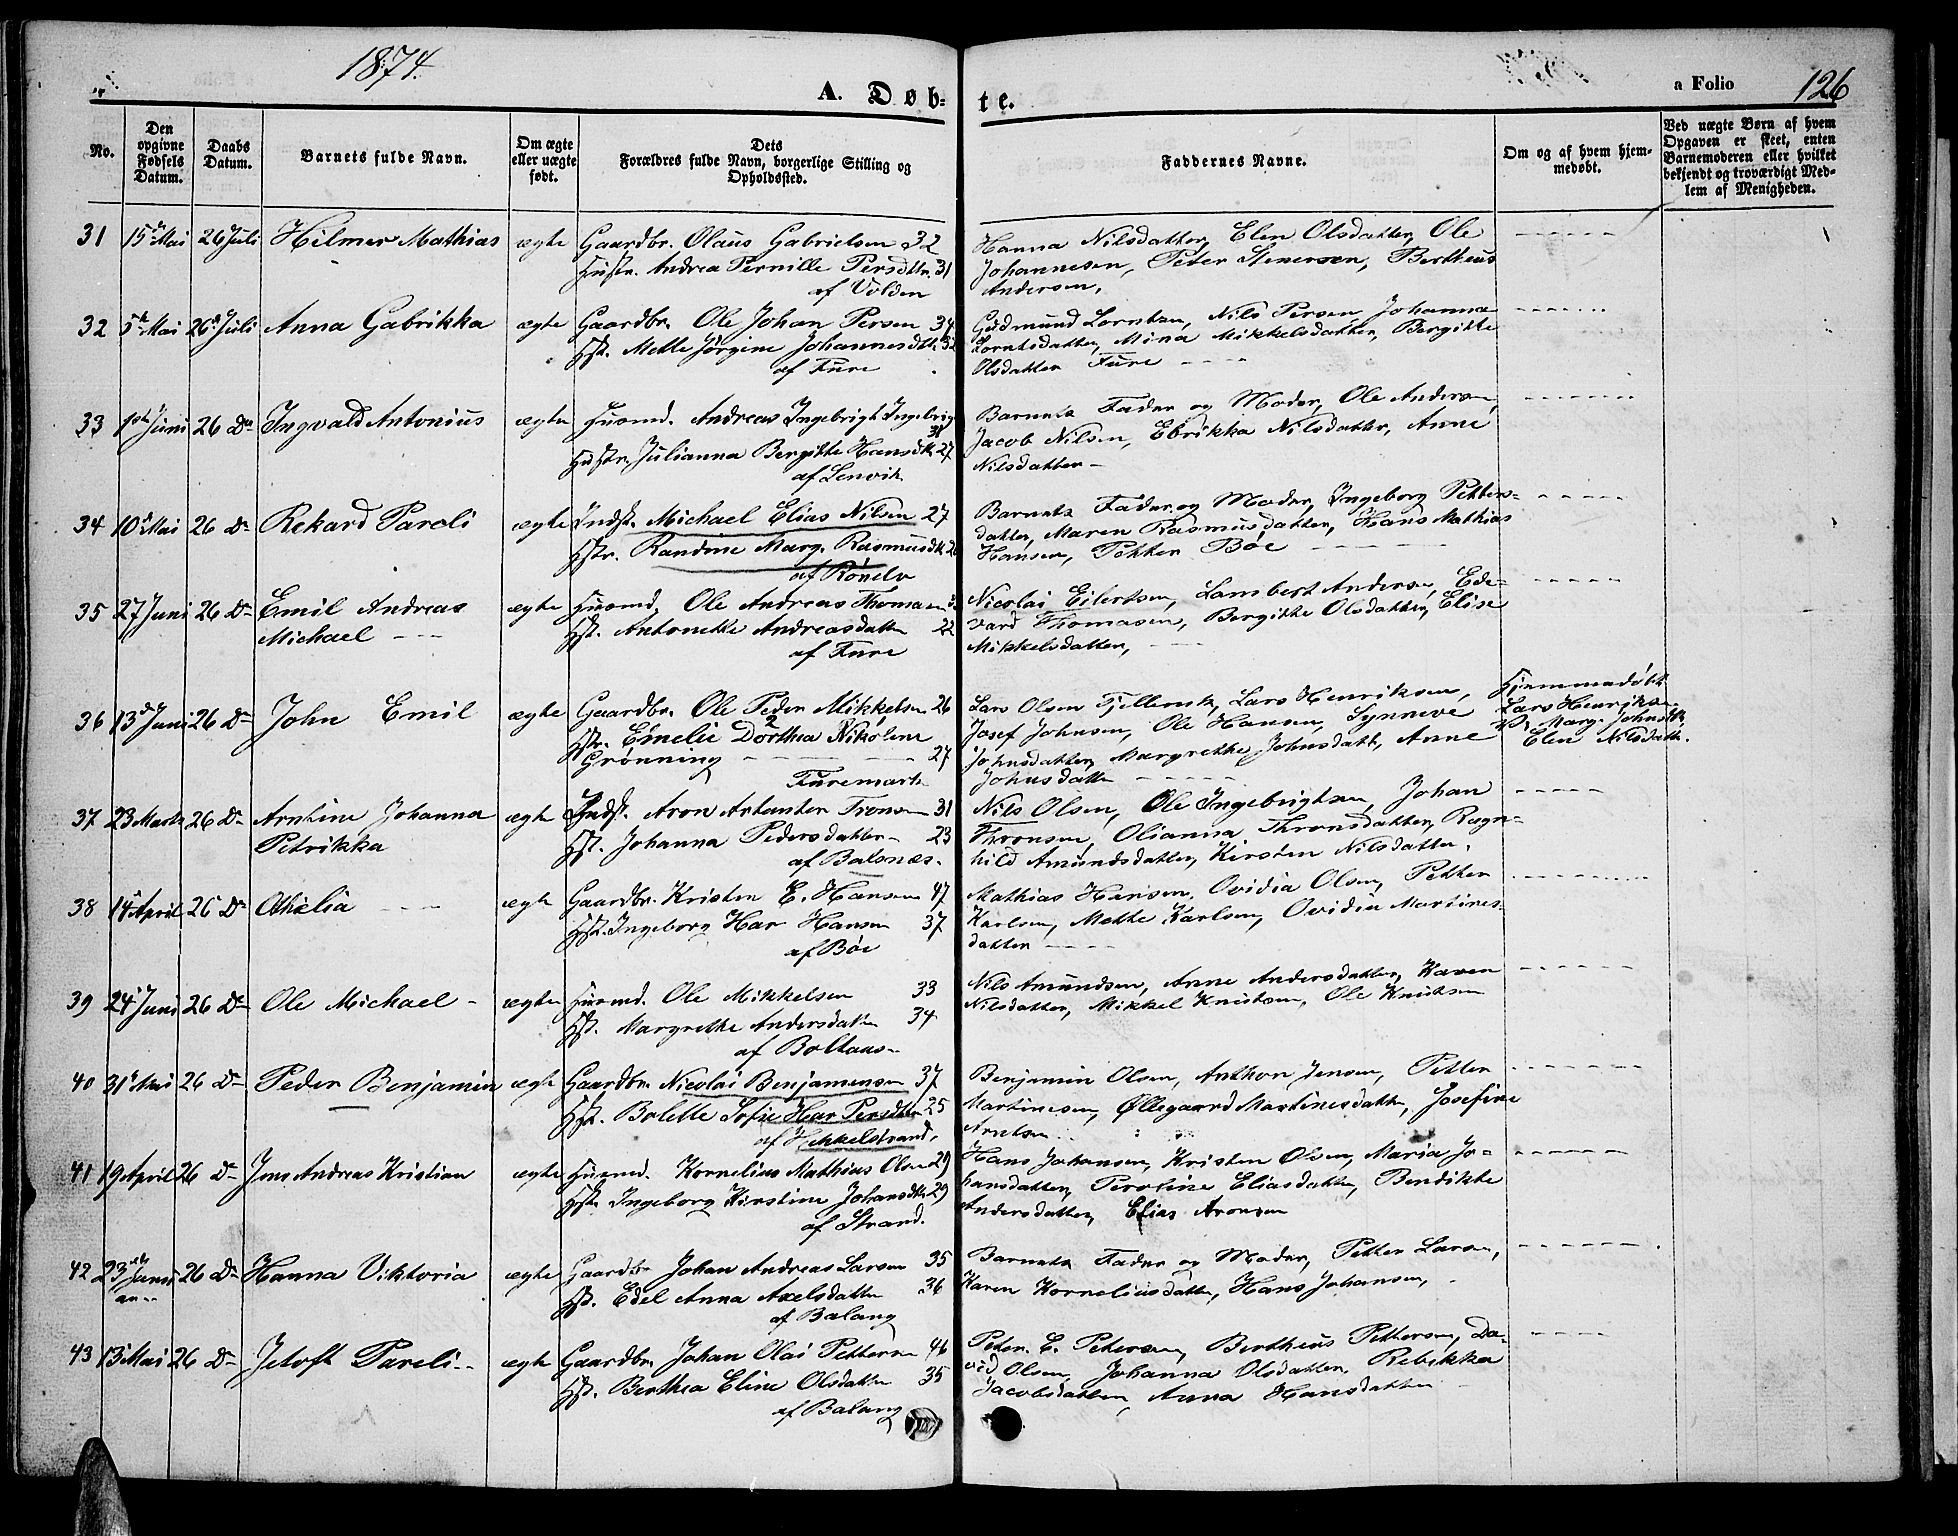 1874.
A. Døb-
te.
a Folio 126
No.
Den opgivne Fødsels Datum.
Daabs Datum.
Barnets fulde Navn.
Om ægte eller uægte født.
Dets Forældres fulde Navn, borgerlige Stilling og Opholdssted.
Faddernes Navne.
Om og af hvem hjem-
medøbt.
Ved uægte Børn af hvem
Opgaven er skeet, enten
Barnemoderen eller hvilket
bekjendt og troværdigt Med-
lem af Menigheden.
31 15de Mai 26 Juli Hilmer Mathias ægte Gaardbr. Olaus Gabrielsen 32
Hustr. Andrea Pernille Persdttr. 31
af Volden
Hanna Nilsdatter, Elen Olsdatter, Ole
Johannesen, Peter Stenersen, Bertheus
Andersen,
32 5te Mai 26de Juli Anna Gabrikka ægte Gaardbr. Ole Johan Persen 34
Hst. Mette Jørgine Johannesdtt. 32
af Fure
Gudmund Lorntsen, Nils Persen, Johanna
Lorntsdatter, Mina Mikkelsdatter, Bergitte
Olsdatter Fure
33 1ste Juni 26 Do Ingvald Antonius ægte Husmd. Andreas Ingebrigt Ingebrig
31
Hustr. Julianna Bergitte Hansdtt. 27
af Lenvik
Barnets Fader og Moder, Ole Andersen,
Jacob Nilsen, Ebrikka Nilsdatter, Anne
Nilsdatter
34 10de Mai 26 Do Rekard Pareli ægte Indst. Michael Elias Nilsen 27
Hstr. Randine Marg. Rasmusdtt.
af Rönelv
Barnets Fader og Moder, Ingeborg Petters-
datter, Maren Rasmusdatter, Hans Mathias
Hansen, Petter Böe
35 27 Juni 26 Do Emil Andreas
Michael
ægte Husmd. Ole Andreas Thomasen
Hst. Antonette Andreasdatter 22
af Fure
Nicolai Eilertsen, Lambert Andersen, Ede-
vard Thomasen, Bergitte Olsdatter, Elise
Mikkelsdatter,
36 13de Juni 26 Do John Emil ægte Gaardbr. Ole Peder Mikkelsen 26
Hstr. Emelie Dorthea Nikoline
Grønning 27
Furemark
Lars Olsen Fjellerset, Lars Henriksen,
Josef Johnsen, Ole Hansen, Synneve
Johnsdatter, Margrethe Johnsdatt, Anne
Johnsdatter
Hjemmedøbt
Lars Henriksen
Marg. Johnsdtt.
Elen Nilsdatt.
37 23 Marts 26 Do Arntine Johanna
Petrikka
ægte Indst. Aron Artanter Tronsen 31
Hst. Johanna Pedersdatter 23
af Balsnæs.
Nils Olsen, Ole Ingebrigtsen, Johan
Thronsen, Olianna Thronsdatter, Ragn-
hild Amundsdatter, Kirsten Nilsdatter.
38 14 April 26 Do Othelia ægte Gaardbr. Kristen E. Hansen 47
Hst. Ingeborg Har Hansen 37
af Böe
Mathias Hansen, Ovidia Olsen, Petter
Karlsen, Mette Karlsen, Ovidia Martines-
datter
39 24 Juni 26 Do Ole Michael ægte Husmd. Ole Mikkelsen 33
Hst. Margrethe Andersdatter 34
af Boltaas
Nils Amundsen, Anne Andersdatter, Karen
Nilsdatter, Mikkel Knutsen, Ole Knutsen
40 31te Mai 26 Do Peder Benjamin ægte Gaardbr. Nicolai Benjaminsen 37
Hst. Bolette Sofie Har Persdatter 25
af Hekkelstrand,
Benjamin Olsen, Anthon Jensen, Petter
Martinesen, Øllegaard Martinesdatter, Josefine
Arntsen
41 19 April 26 Do Jens Andreas Kristian ægte Husmd. Kornelius Mathias Olsen 29
Hst. Ingeborg Kirstine Johansdtt. 29
af Strand.
Hans Johansen, Kristen Olsen, Maria Jo-
hansdatter, Peroline Eliasdatter, Bendikte
Andersdatter, Elias Aronsen
42 23de Janu
ar
26 Do Hanna Viktoria ægte Gaardbr. Johan Andreas Larsen 35
Hst. Edel Anna Axelsdatter 36
af Balang
Barnets Fader og Moder, Petter Larsen,
Karen Korneliusdatter, Hans Johansen,
43 13 Mai 26 Do Jetoft Pareli ægte Gaardbr. Johan Olai Pettersen 46
Hst. Berthea Eline Olsdatter 35
af Balang
Peter E. Petersen, Bertheus Pettersen, Da-
vid Olsen, Johanna Olsdatter, Rebikka
Jacobsdatter, Anna Hansdatter